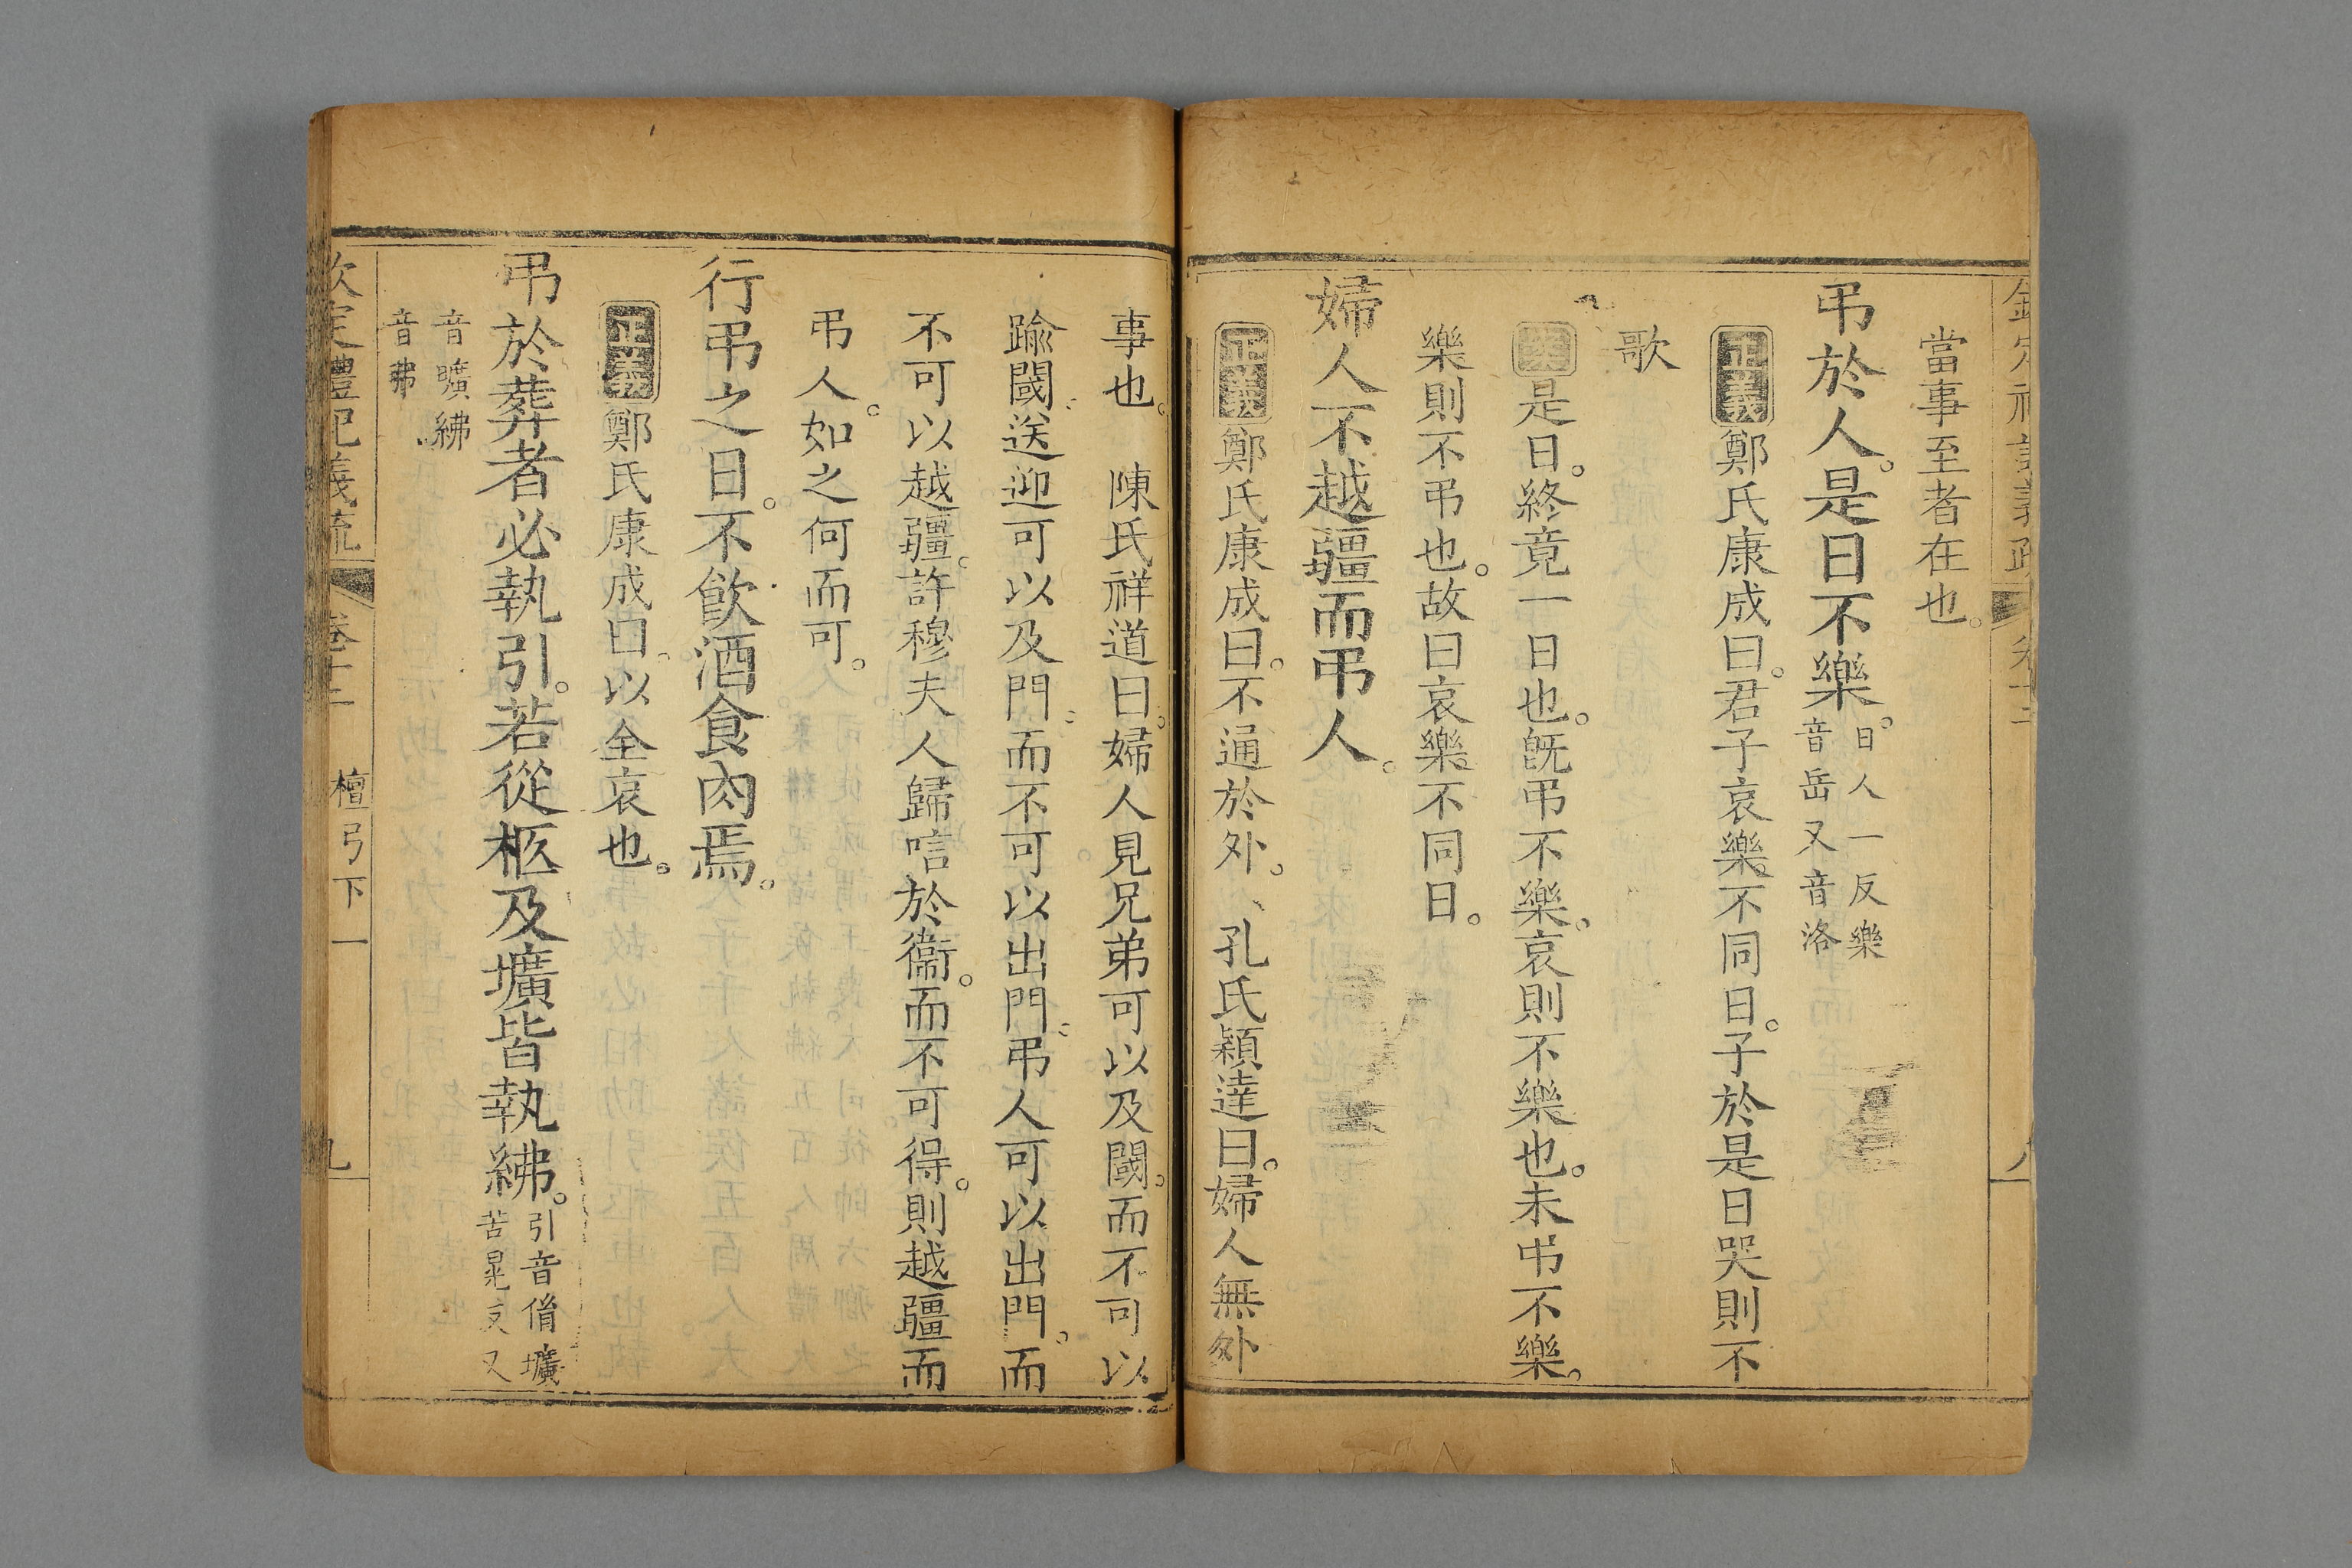 當事至者在也。
弔於人。是日不樂。日人一反樂音岳又音洛
正義鄭氏康成曰。君子哀樂。不同日。子於是日哭則不
歌
案是日。終竟一日也。既弔不樂。哀則不樂也。未弔不樂。
樂則不弔也。故曰哀樂不同日。
婦人不越疆而弔人。
正義鄭氏康成曰。不通於外。、孔氏穎達曰。婦人無外
事也。陳氏祥道曰。婦人見兄弟可以及閾。而不可以
踰閾。送迎可以及門。而不可以出門。弔人可以出門。而
不可以越疆。許穆夫人歸唁於衞。而不可得。則越疆而
弔人。如之何而可。
行弔之日。不飲酒食肉焉。
正義鄭氏康成曰。以全哀也。
弔於葬者必執引。若從柩及壙皆執紼。引音偦壙苦晃反又
音曠紼音弗
欽定禮記義疏 卷十二 檀弓下 一 九